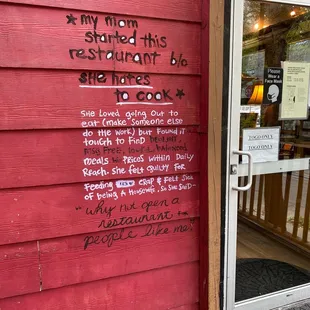 ★ my mom
started this
restaurant b/c
she hates
to cook ★
She Loved going Out to
eat (make Someone else
do the work) but Found it
tough to Find
meals w/ Prices within Daily
Reach. She Felt Guilty For
Feeding CRAP & Felt Sick
of being A Housewife, So She Said-
"why not open a
restaurant for
people like me"
Please
Wear a
Face Mask
TOGO ONLY
TOGO ONLY